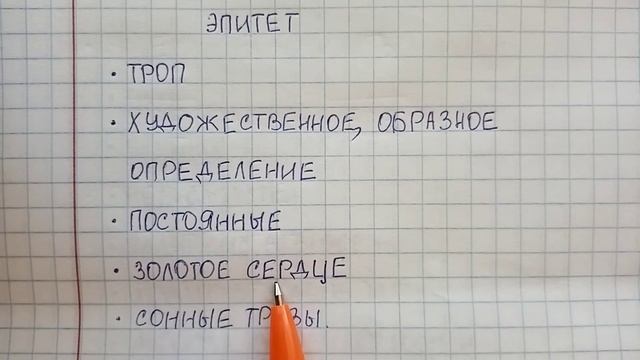 ЭПИТЕТ
· ТРОП
· ХУДОЖЕСТВЕННОЕ, ОБРАЗНОЕ
ОПРЕДЕЛЕНИЕ
· ПОСТОЯННЫЕ
· ЗОЛОТОЕ СЕРДЦЕ
· СОННЫЕ